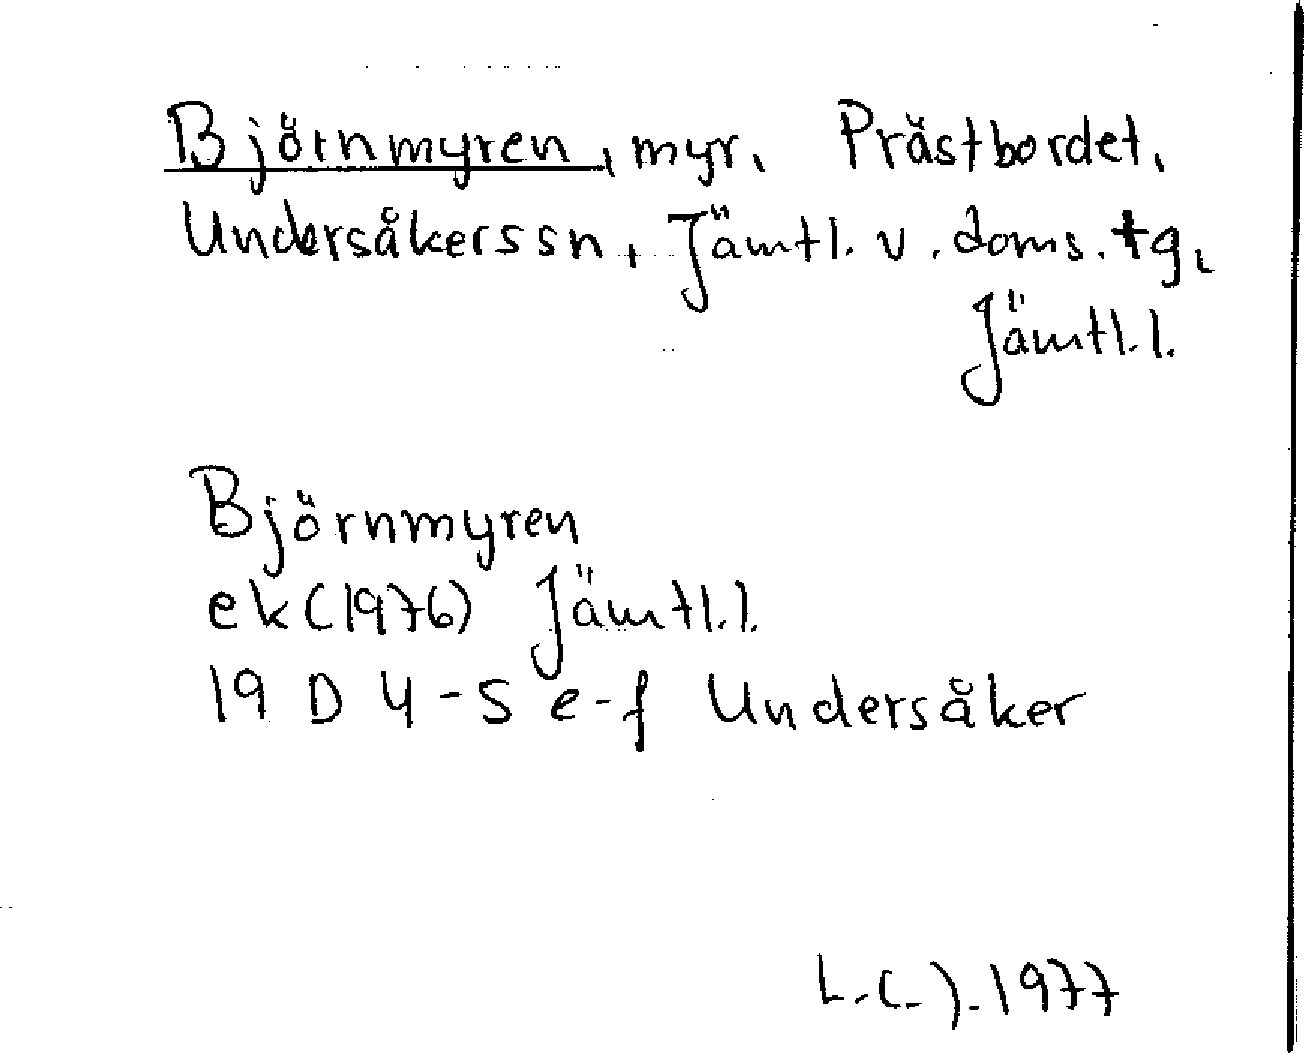 Björnmyren, myr, Prästbordet,
Undersåkers sn, Jämtl. v. doms. tg,
Jämtl. l.
Björnmyren
ek (1976) Jämtl. l.
19 D 4-5 e-f Undersåker
1977